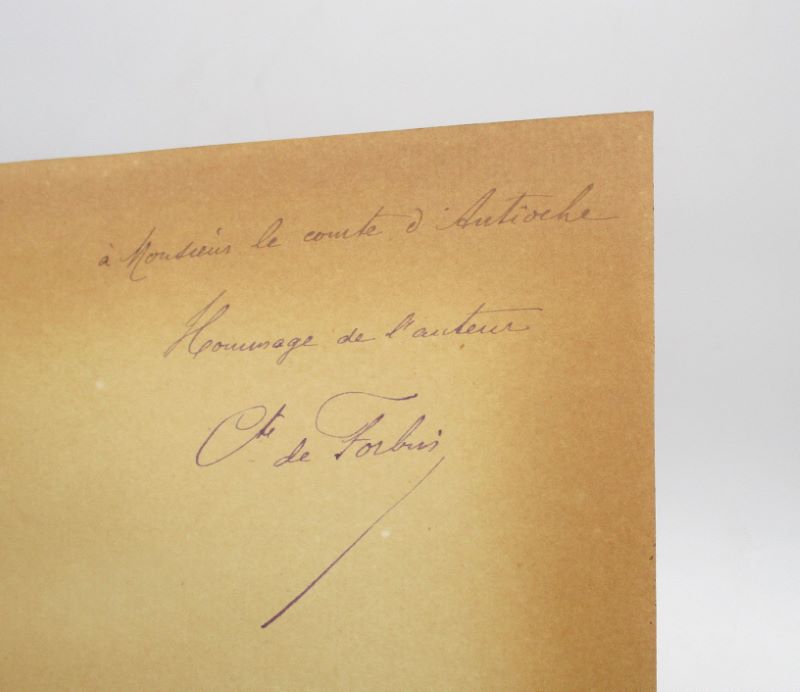 à Monsieur le comte d'Antioche
Hommage de l'auteur
Cte de Forbin